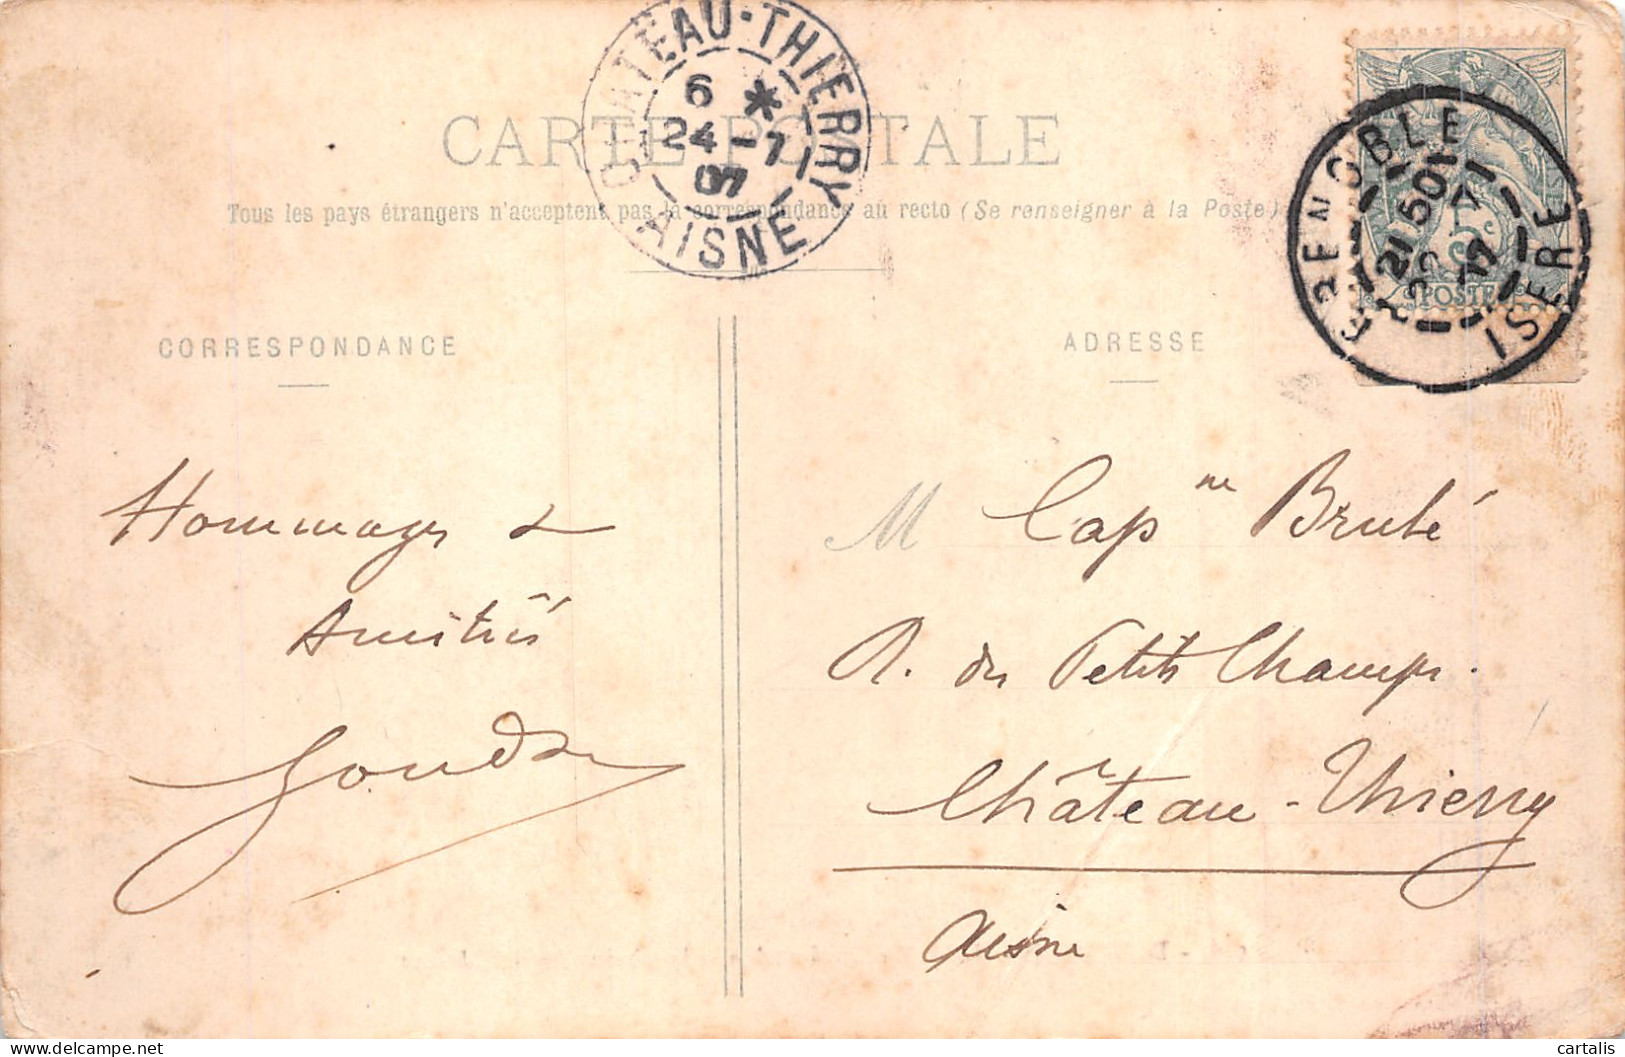 CARTE POSTALE
Tous les pays étrangers n'acceptent pas la correspondance au recto (Se renseigner à la Poste)
CHATEAU-THIERRY
6 *
24-7
07
AISNE
GRENOBLE
21 50
ISERE
5c
POSTES
CORRESPONDANCE
ADRESSE
Hommages &
Amitiés
M Cap ne Brulé
R. des Petits Champs.
Château-Thierry
Aisne
cartalis